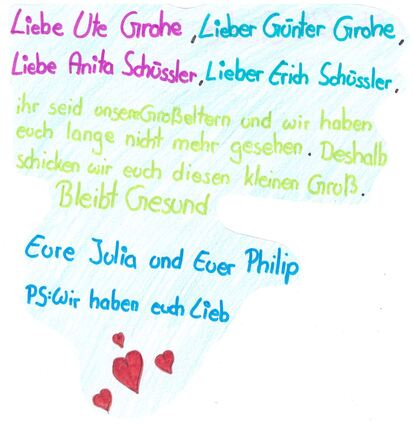 Liebe Ute Grohe, Lieber Günter Grohe,
Liebe Anita Schüssler, Lieber Erich Schüssler.
ihr seid unsere Großeltern und wir haben
euch lange nicht mehr gesehen. Deshalb
schicken wir euch diesen kleinen Gruß.
Bleibt Gesund
Eure Julia und Euer Philip
PS: Wir haben euch Lieb